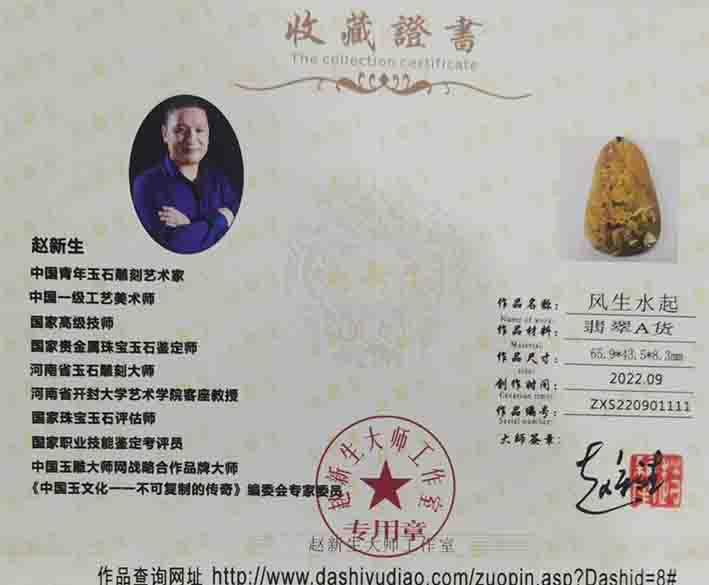 收藏證書
The collection certificate
赵新生
中国青年玉石雕刻艺术家
中国一级工艺美术师
国家高级技师
国家贵金属珠宝玉石鉴定师
河南省玉石雕刻大师
河南省开封大学艺术学院客座教授
国家珠宝玉石评估师
国家职业技能鉴定考评员
中国玉雕大师网战略合作品牌大师
《中国玉文化——不可复制的传奇》编委会专家委员
作品名称: 风生水起
Name of work:
作品材料: 翡翠A货
Material:
作品尺寸: 65.9*43.5*8.3mm
size:
创作时间: 2022.09
Creation time:
作品编号: ZXS220901111
Serial number:
大师签章:
赵新生大师工作室
专用章
赵新生大师工作室
作品查询网址 http://www.dashiyudiao.com/zuopin.asp?Dashid=8#